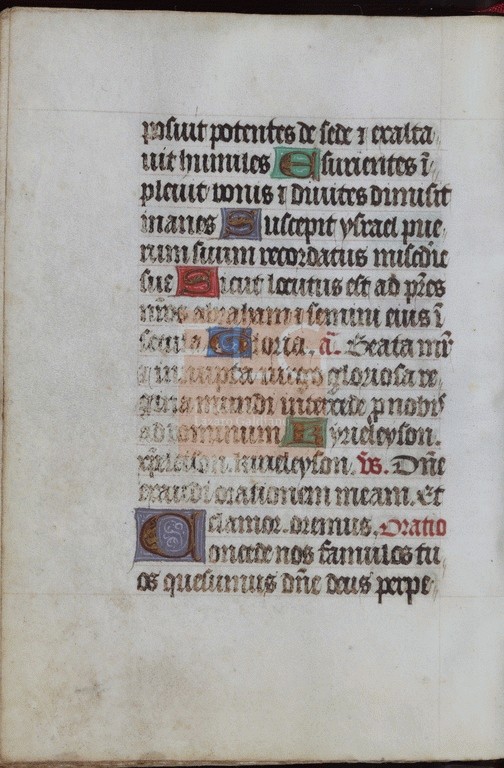 posuit potentes de sede ⁊ exalta
uit humiles Esurientes ī
pleuit bonis ⁊ diuites dimisit
inanes Suscepit ysrael pue
rum suum recordatus misc̄die
sue Sicut locutus est ad pr̄es
nr̄os abraham ⁊ semini eius ī
secula Gloria. a͞. Beata mr̄
⁊ innupta uirgo gloriosa re
gina mundi intercede p nobis
ad dominum Kyrieleyson.
xp̄eleison. kyrieleyson. v̄s. Dn̄e
exaudi orationem meam. Et
clamor. oremus. Oratio
Concede nos famulos tu
os quesumus dn̄e deus perpe